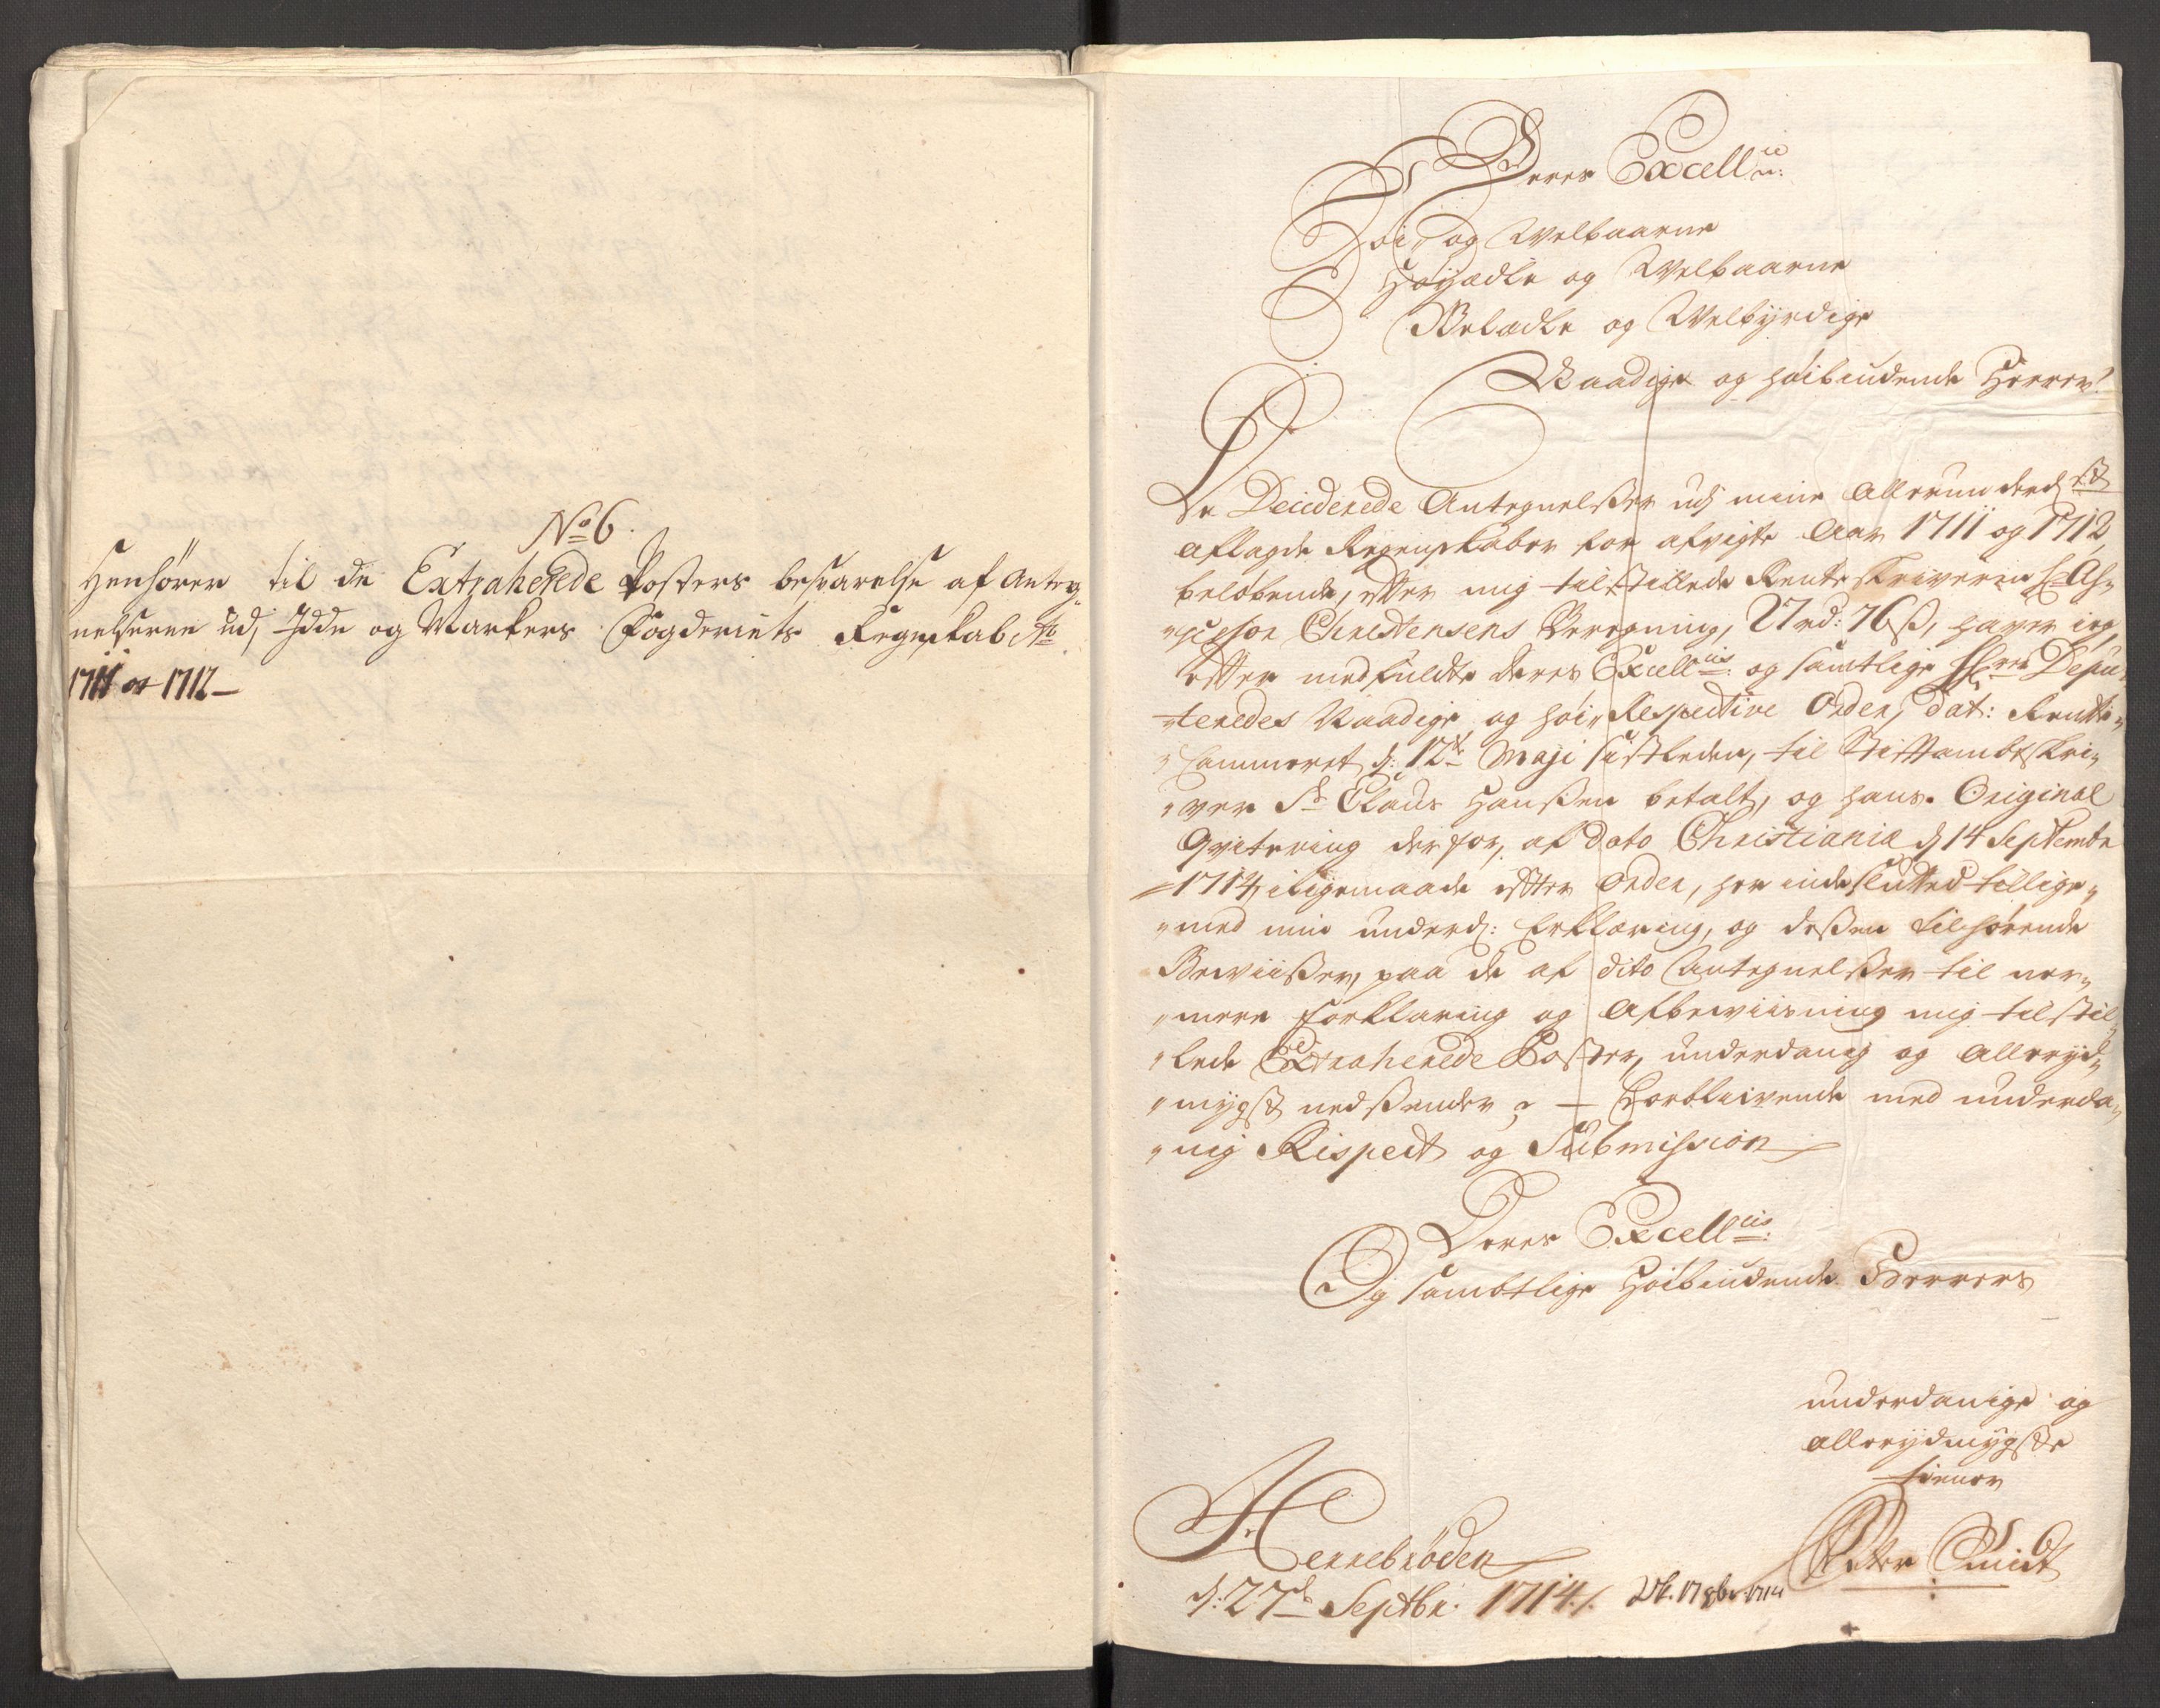 No 6.
Henhörer til de Extraherede Posters besvarelse af Anteg-
nelserne ud, Idde og Markers Fogderiets Regnskab Ao
1711 og 1712
Deres Excell:
Höi- og Welbaarne
Höyædle og Welbaarne
Velædle og Welbyrdige
Naadige og höibiudende Herrer!
De Deciderede Antegnelsser udj mine Allerunderd:st
aflagde Regenskaber for afvigte Aar 1711 og 1712,
belöbende, effter mig tilstillede Renteskriveren Hr As-
sessor Christensens Beregning, 27 rd: 76 ß, haver ieg,
effter medfuldte deres Excell: og samtlige HHrrs Depu-
teredes Naadige og höi-Respective Order, dat: Rentte-
Cammeret d: 12te Maji sistleden, til Stiftambtskri-
ver Sr Claus Hanssen betalt, og hans Original
Qvitering derfor, af dato Christiania d 14 Septembr
1714, iligemaade effter Order, her indeslutted tillige-
med min underd: Erklæring, og dessen tilhörende
Beviisser, paa de af dito Antegnelsser til ner-
mere forklaring og Afbeviisning mig tilstil-
lede Extraherede Poster, underdanig og Alleryd-
mygst nedssender, Forblivende med underda-
nig Respect og Submission
Deres Excell:
Og sambtlige Höibiudende Herrers
underdanige og
allerydmygste
tienner
Peter Smidt
Herrebröden
d: 27de Septbr. 1714.
17 8br 1714